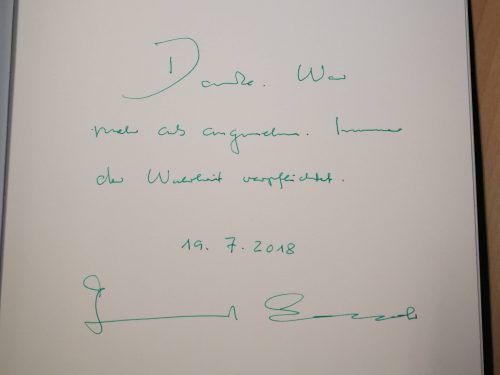 Danke. War
mehr als angenehm. Immer
der Wahrheit verpflichtet.
19. 7. 2018